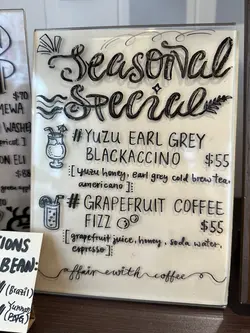 Seasonal
Special
#YUZU EARL GREY
BLACKACCINO $55
[yuzu honey, earl grey cold brew tea,
americano]
#GRAPEFRUIT COFFEE
FIZZ $55
[grapefruit juice, honey, soda water,
espresso]
affair with coffee
$70
WASHE
ON ELI
$55
IONS
BEAN:
(Brazil)